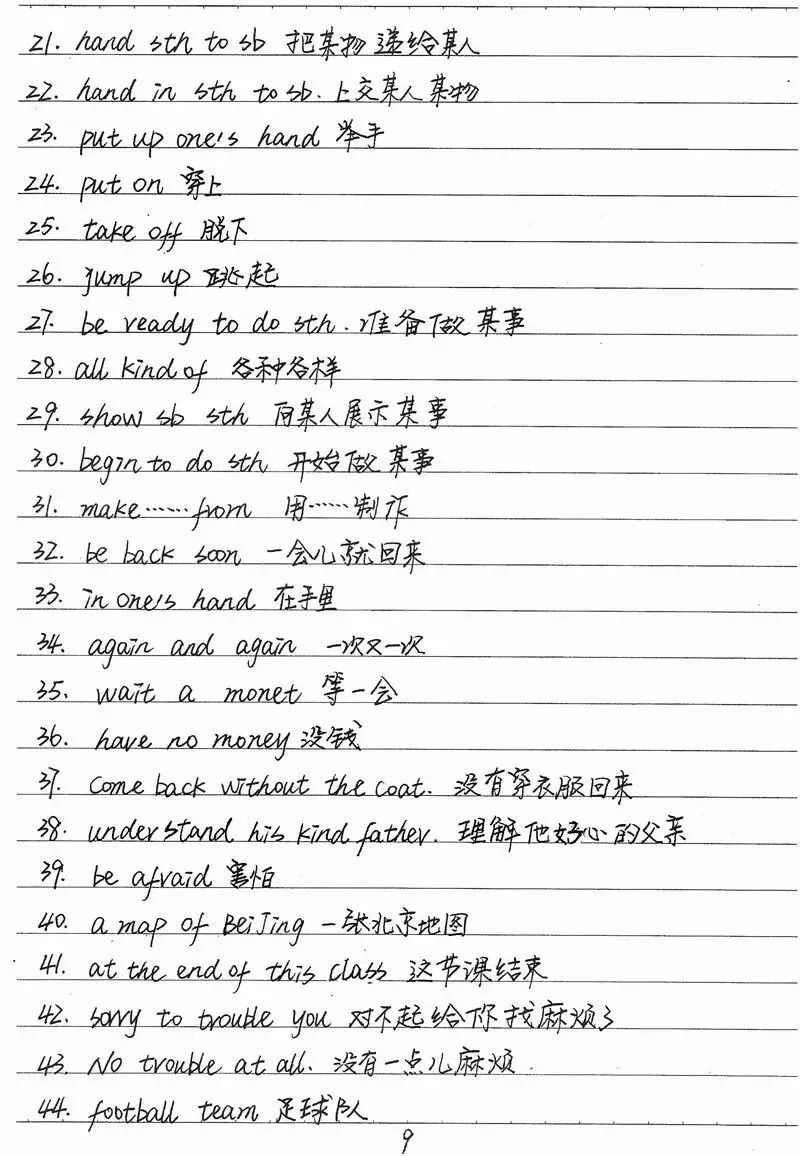 21. hand sth to sb 把某物递给某人
22. hand in sth to sb. 上交某人某物
23. put up one's hand 举手
24. put on 穿上
25. take off 脱下
26. jump up 跳起
27. be ready to do sth. 准备做某事
28. all kind of 各种各样
29. show sb sth 向某人展示某事
30. begin to do sth 开始做某事
31. make……from 用……制作
32. be back soon 一会儿就回来
33. in one's hand 在手里
34. again and again 一次又一次
35. wait a monet 等一会
36. have no money 没钱
37. come back without the coat. 没有穿衣服回来
38. understand his kind father. 理解他好心的父亲
39. be afraid 害怕
40. a map of BeiJing 一张北京地图
41. at the end of this class 这节课结束
42. sorry to trouble you 对不起给你找麻烦了
43. No trouble at all. 没有一点儿麻烦.
44. football team 足球队
9